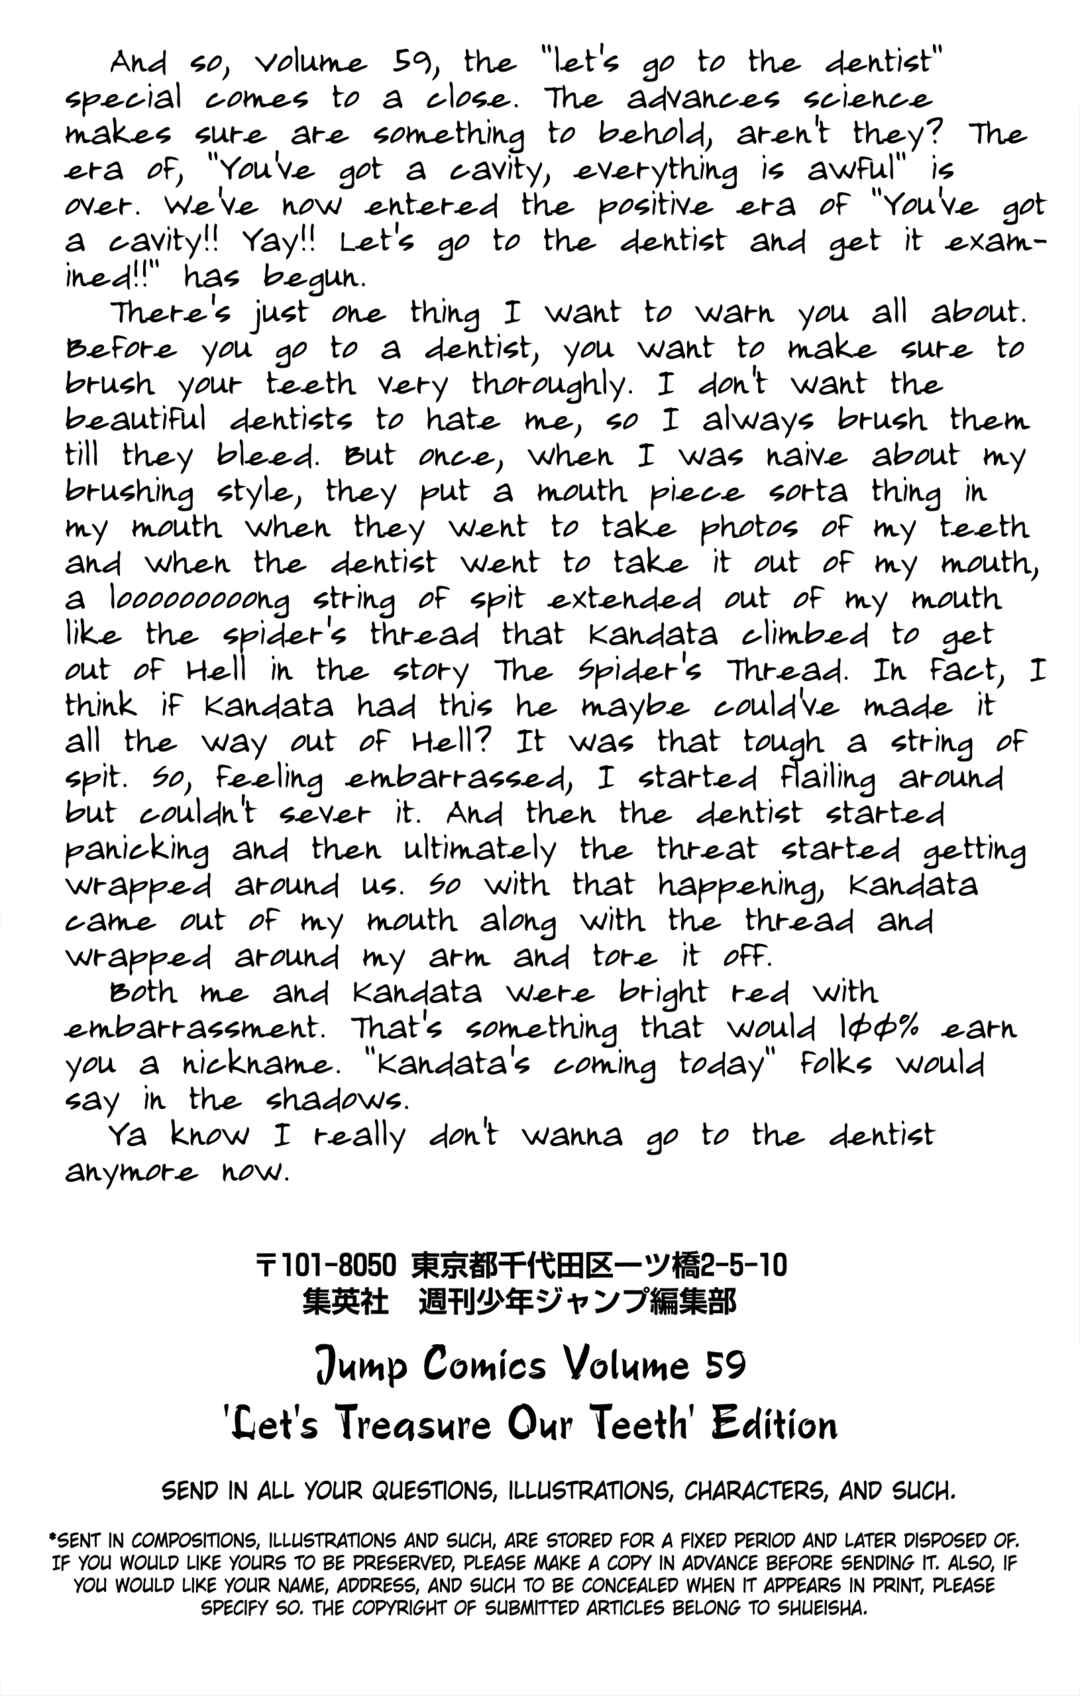 And so, volume 59, the "let's go to the dentist"
special comes to a close. The advances science
makes sure are something to behold, aren't they? The
era of, "You've got a cavity, everything is awful" is
over. We've now entered the positive era of "You've got
a cavity!! Yay!! Let's go to the dentist and get it exam-
ined!!" has begun.
There's just one thing I want to warn you all about.
Before you go to a dentist, you want to make sure to
brush your teeth very thoroughly. I don't want the
beautiful dentists to hate me, so I always brush them
till they bleed. But once, when I was naive about my
brushing style, they put a mouth piece sorta thing in
my mouth when they went to take photos of my teeth
and when the dentist went to take it out of my mouth,
a looooooooong string of spit extended out of my mouth
like the spider's thread that Kandata climbed to get
out of Hell in the story The Spider's Thread. In fact, I
think if Kandata had this he maybe could've made it
all the way out of Hell? It was that tough a string of
spit. So, feeling embarrassed, I started flailing around
but couldn't sever it. And then the dentist started
panicking and then ultimately the threat started getting
wrapped around us. So with that happening, Kandata
came out of my mouth along with the thread and
wrapped around my arm and tore it off.
Both me and Kandata were bright red with
embarrassment. That's something that would 100% earn
you a nickname. "Kandata's coming today" folks would
say in the shadows.
Ya know I really don't wanna go to the dentist
anymore now.
〒101-8050 東京都千代田区一ツ橋2-5-10
集英社 週刊少年ジャンプ編集部
Jump Comics Volume 59
'Let's Treasure Our Teeth' Edition
SEND IN ALL YOUR QUESTIONS, ILLUSTRATIONS, CHARACTERS, AND SUCH.
*SENT IN COMPOSITIONS, ILLUSTRATIONS AND SUCH, ARE STORED FOR A FIXED PERIOD AND LATER DISPOSED OF.
IF YOU WOULD LIKE YOURS TO BE PRESERVED, PLEASE MAKE A COPY IN ADVANCE BEFORE SENDING IT. ALSO, IF
YOU WOULD LIKE YOUR NAME, ADDRESS, AND SUCH TO BE CONCEALED WHEN IT APPEARS IN PRINT, PLEASE
SPECIFY SO. THE COPYRIGHT OF SUBMITTED ARTICLES BELONG TO SHUEISHA.